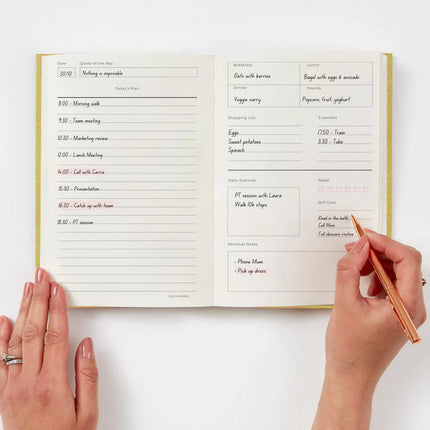 Date
Quote of the day
30/10
Nothing is impossible
Today's Plan:
8:00 - Morning walk
9:30 - Team meeting
10:30 - Marketing review
12:00 - Lunch Meeting
14:00 - Call with Carrie
15:30 - Presentation
16:30 - Catch up with team
18:30 - PT session
Breakfast
Lunch
Oats with berries
Bagel with eggs & avocado
Dinner
Snacks
Veggie curry
Popcorn, fruit, yoghurt
Shopping List
Expenses
Eggs
Sweet potatoes
Spinach
17.50 - Train
3.30 - Tube
Daily Exercise
Water
PT session with Laura
Walk 10k steps
Self Care
Read in the bath
Call Mum
Full skincare routine
Personal Notes
- Phone Mum
- Pick up dress